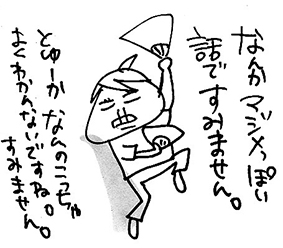 なんかマジメっぽい
話ですみません。
とゆーかなんのこっちゃ
よくわかんないですね。
すみません。